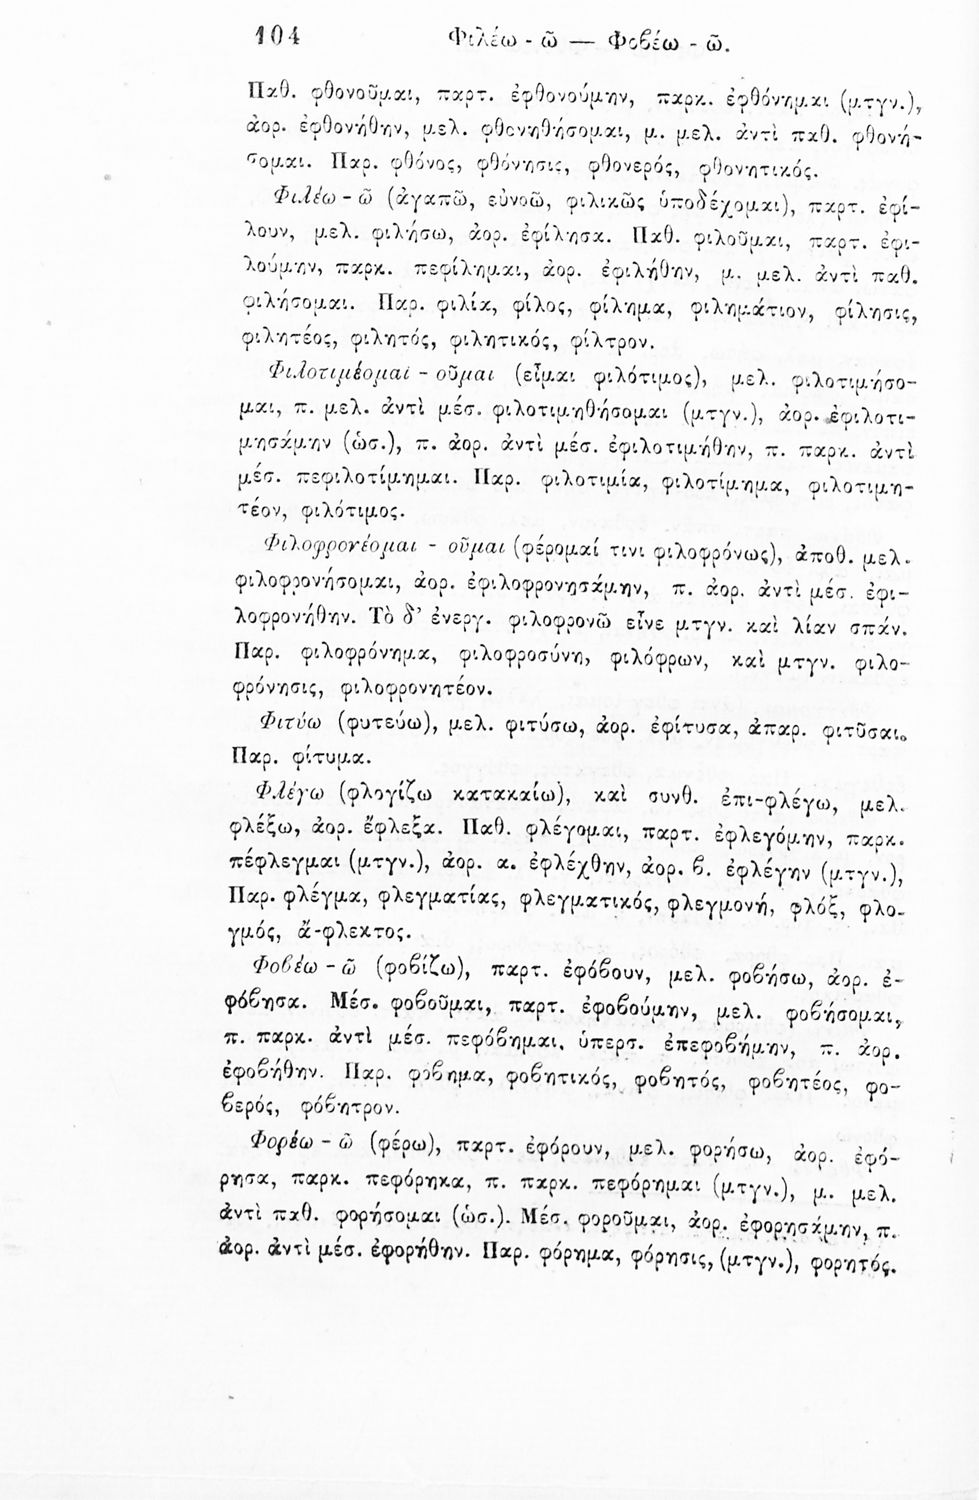 104 Φιλέω - ῶ — Φοβέω - ῶ.
Παθ. φθονοῦμαι, παρτ. ἐφθονούμην, παρκ. ἐφθόνημαι (μτγν.),
ἀορ. ἐφθονήθην, μελ. φθονηθήσομαι, μ. μελ. ἀντὶ παθ. φθονή-
σομαι. Παρ. φθόνος, φθόνησις, φθονερός, φθονητικός.
Φιλέω - ῶ (ἀγαπῶ, εὐνοῶ, φιλικῶς ὑποδέχομαι), παρτ. ἐφί-
λουν, μελ. φιλήσω, ἀορ. ἐφίλησα. Παθ. φιλοῦμαι, παρτ. ἐφι-
λούμην, παρκ. πεφίλημαι, ἀορ. ἐφιλήθην, μ. μελ. ἀντὶ παθ.
φιλήσομαι. Παρ. φιλία, φίλος, φίλημα, φιλημάτιον, φίλησις,
φιλητέος, φιλητός, φιλητικός, φίλτρον.
Φιλοτιμέομαι - οῦμαι (εἶμαι φιλότιμος), μελ. φιλοτιμήσο-
μαι, π. μελ. ἀντὶ μέσ. φιλοτιμηθήσομαι (μτγν.), ἀορ. ἐφιλοτι-
μησάμην (ὡσ.), π. ἀορ. ἀντὶ μέσ. ἐφιλοτιμήθην, π. παρκ. ἀντὶ
μέσ. πεφιλοτίμημαι. Παρ. φιλοτιμία, φιλοτίμημα, φιλοτιμη-
τέον, φιλότιμος.
Φιλοφρονέομαι - οῦμαι (φέρομαί τινι φιλοφρόνως), ἀποθ. μελ.
φιλοφρονήσομαι, ἀορ. ἐφιλοφρονησάμην, π. ἀορ. ἀντὶ μέσ. ἐφι-
λοφρονήθην. Τὸ δ' ἐνεργ. φιλοφρονῶ εἶνε μτγν. καὶ λίαν σπάν.
Παρ. φιλοφρόνημα, φιλοφροσύνη, φιλόφρων, καὶ μτγν. φιλο-
φρόνησις, φιλοφρονητέον.
Φιτύω (φυτεύω), μελ. φιτύσω, ἀορ. ἐφίτυσα, ἀπαρ. φιτῦσαι.
Παρ. φίτυμα.
Φλέγω (φλογίζω κατακαίω), καὶ συνθ. ἐπι-φλέγω, μελ.
φλέξω, ἀορ. ἔφλεξα. Παθ. φλέγομαι, παρτ. ἐφλεγόμην, παρκ.
πέφλεγμαι (μτγν.), ἀορ. α. ἐφλέχθην, ἀορ. β. ἐφλέγην (μτγν.),
Παρ. φλέγμα, φλεγματίας, φλεγματικός, φλεγμονή, φλόξ, φλο-
γμός, ἄ-φλεκτος.
Φοβέω - ῶ (φοβίζω), παρτ. ἐφόβουν, μελ. φοβήσω, ἀορ. ἐ-
φόβησα. Μέσ. φοβοῦμαι, παρτ. ἐφοβούμην, μελ. φοβήσομαι,
π. παρκ. ἀντὶ μέσ. πεφόβημαι, ὑπερσ. ἐπεφοβήμην, π. ἀορ.
ἐφοβήθην. Παρ. φόβημα, φοβητικός, φοβητός, φοβητέος, φο-
βερός, φόβητρον.
Φορέω - ῶ (φέρω), παρτ. ἐφόρουν, μελ. φορήσω, ἀορ. ἐφό-
ρησα, παρκ. πεφόρηκα, π. παρκ. πεφόρημαι (μτγν.), μ. μελ.
ἀντὶ παθ. φορήσομαι (ὡσ.). Μέσ. φοροῦμαι, ἀορ. ἐφορησάμην, π.
ἀορ. ἀντὶ μέσ. ἐφορήθην. Παρ. φόρημα, φόρησις, (μτγν.), φορητός.